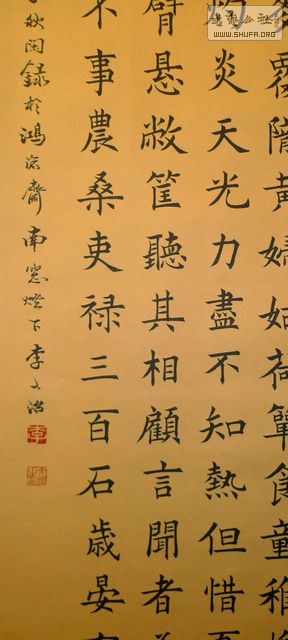 書法公社
WWW.SHUFA.ORG
覆隴黃婦姑荷簞食童稚
灼炎天光力盡不知熱但惜夏
臂懸敝筐聽其相顧言聞者為
不事農桑吏禄三百石歲晏有
秋閑録於鴻齋南窓燈下李文治